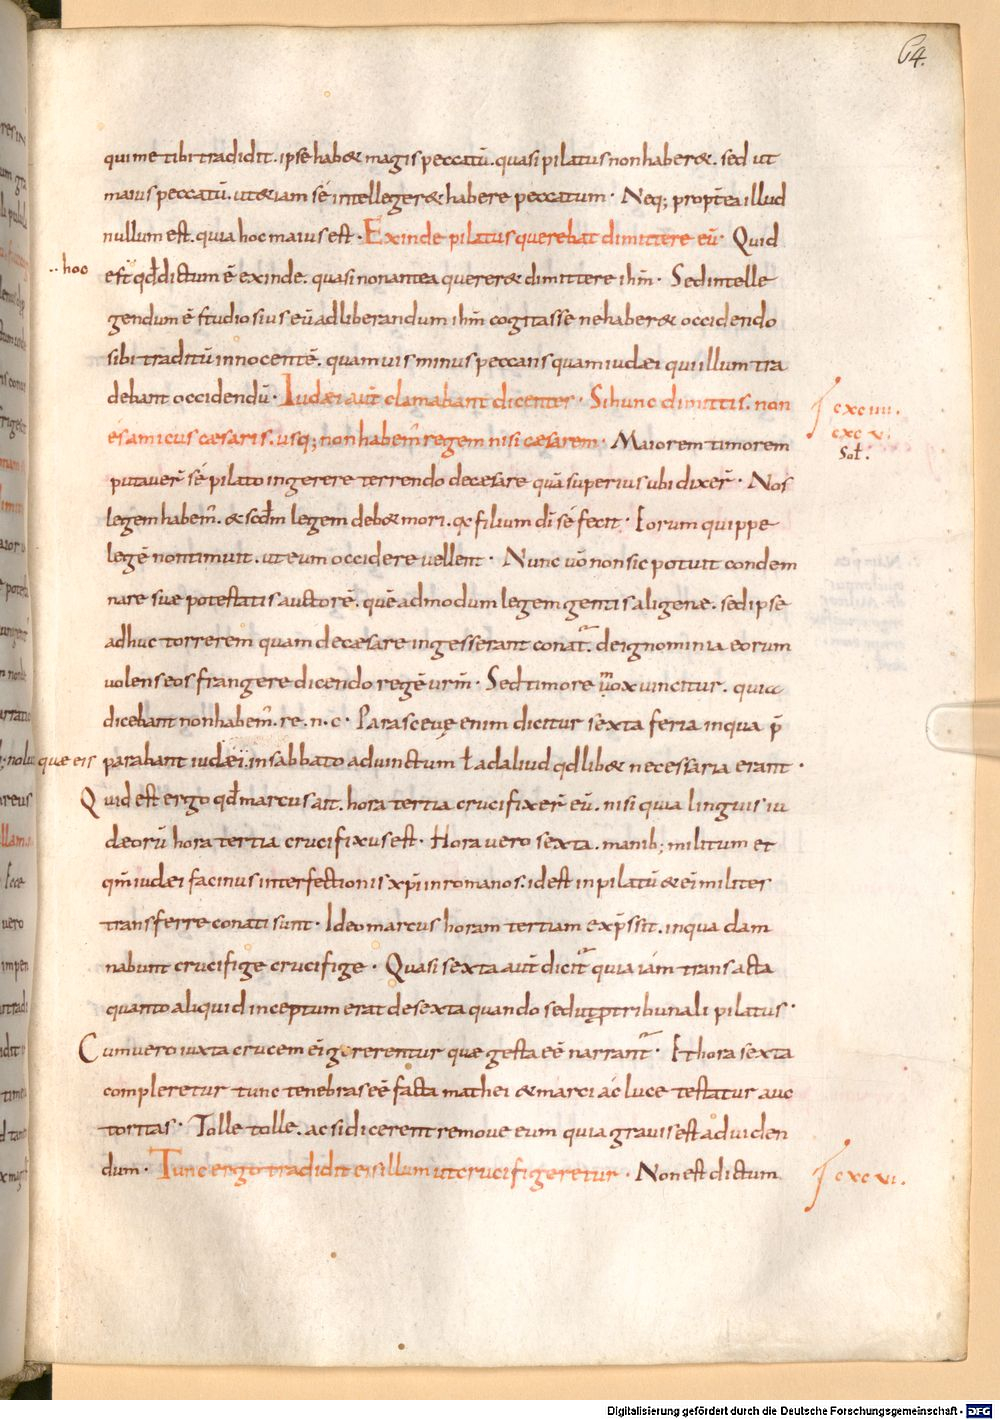 64.
qui me tibi tradidit. ipse hab& magis peccatū. quasi pilatus non haber&. sed ut
maius peccatū. ut &iam sé intelleger& habere peccatum · Neq; propt̄ea illud
nullum est. quia hoc maius est · Exinde pilatus querebat dimittere eū · Quid
·· hoc
est qđ dictum ē exinde. quasi non antea querer& dimittere ihm̄ · Sed intelle
gendum ē studiosius eū ad liberandum ihm̄ cogitasse ne haber& occidendo
sibi traditū innocentē. quamuis minus peccans quam iudæi qui illum tra
debant occidendū · Iudæi aut̄ clamabant dicentes · Si hunc dimittis. non
cxc iiii.
és amicus cæsaris. usq; non habem̄ regem nisi cæsarem · Maiorem timorem
cxc v.
Sot̄.
putaver̄ sé pilato ingerere terrendo de cæsare quā superius ubi dixer̄ · Nos
legem habem̄. & scdm̄ legem deb& mori. qꝛ filium dī sé fecit · Eorum quippe
legē non timuit. ut eum occidere vellent · Nunc vō non sic potuit condem
nare suæ potestatis auctorē. quē admodum legem gentis aligenæ. sed ipse
adhuc torrerem quam de cæsare ingesserant conat̄. de ignominia eorum
volens eos frangere dicendo regē vrm̄ · Sed timore mox vincitur. quia
dicebant non habem̄. re. n. c · Parasceuę enim dicitur sexta feria in qua p̄
quæ eis parabant iudæi. in sabbato ad vinctum ł ad aliud qđ lib& necessaria erant ·
Quid est ergo qđ marcus ait. hora tertia crucifixer̄ eū. nisi quia linguis iu
dæorū hora tertia crucifixus est · Hora vero sexta. manib; militum et
qm̄ iudæi facinus interfectionis xpī in romanos. id est in pilatū & eī milites
transferre conati sunt · Ideo marcus horam tertiam exp̄ssit. in qua clam
nabunt crucifige crucifige · Quasi sexta aut̄ dicit̄ quia iám transacta
quanto aliquid inceptum erat de sexta quando sed ut ꝓ tribunali pilatus ·
Cum vero iuxta crucem eī gererentur quæ gesta eē narrant̄ · Et hora sexta
compleretur tunc tenebras eē facta mathei & marci ac luce testatur auc
toritas · Tolle tolle. ac si dicerent remove eum quia gravis est ad viden
dum · Tunc ergo tradidit eis illum ut crucifigeretur · Non est dictum
cxc vi.
Digitalisierung gefördert durch die Deutsche Forschungsgemeinschaft - DFG